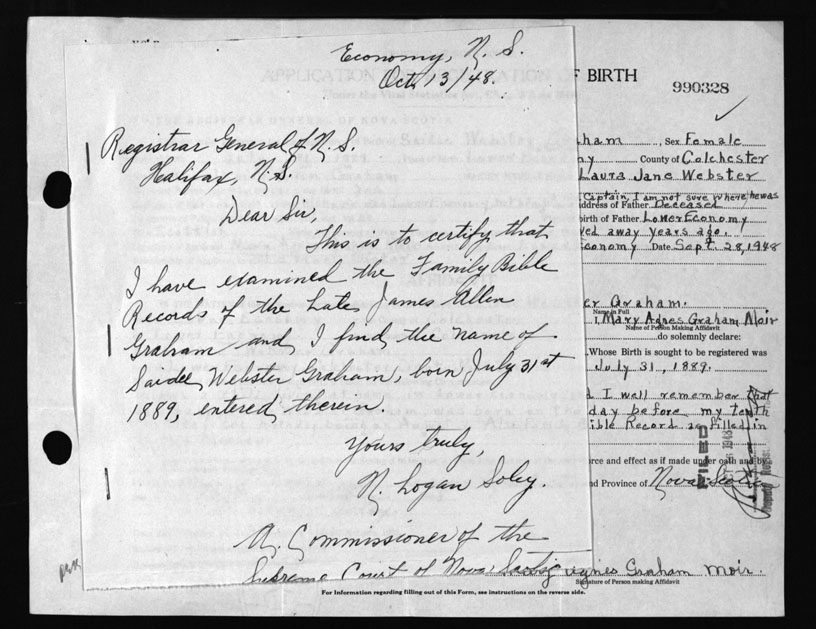 Economy, N. S.
Oct. 13/48.
Registrar General of N. S.,
Halifax, N. S.
Dear Sir,
This is to certify that
I have examined the Family Bible
Records of the Late James Allen
Graham and I find the name of
Saidee Webster Graham, born July 31st
1889, entered therein.
Yours truly,
N. Logan Soley.
A. Commissioner of the
Supreme Court of Nova Scotia
F BIRTH
990328
ham Sex Female
ny County of Colchester
Laura Jane Webster
Captain, I am not sure where he was
ddress of Father Deceased
irth of Father Lower Economy
ved away years ago.
Economy Date Sept. 28, 1948
er Graham.
Name in Full
, Mary Agnes Graham Moir
Name of Person Making Affidavit
do solemnly declare:
Whose Birth is sought to be registered was
July 31, 1889.
d I well remember that
day before my tenth
ible Record as filled in
FILED
1948
orce and effect as if made under oath and by
nd Province of Nova Scotia
Agnes Graham Moir.
Signature of Person making Affidavit
For Information regarding filling out of this Form, see instructions on the reverse side.